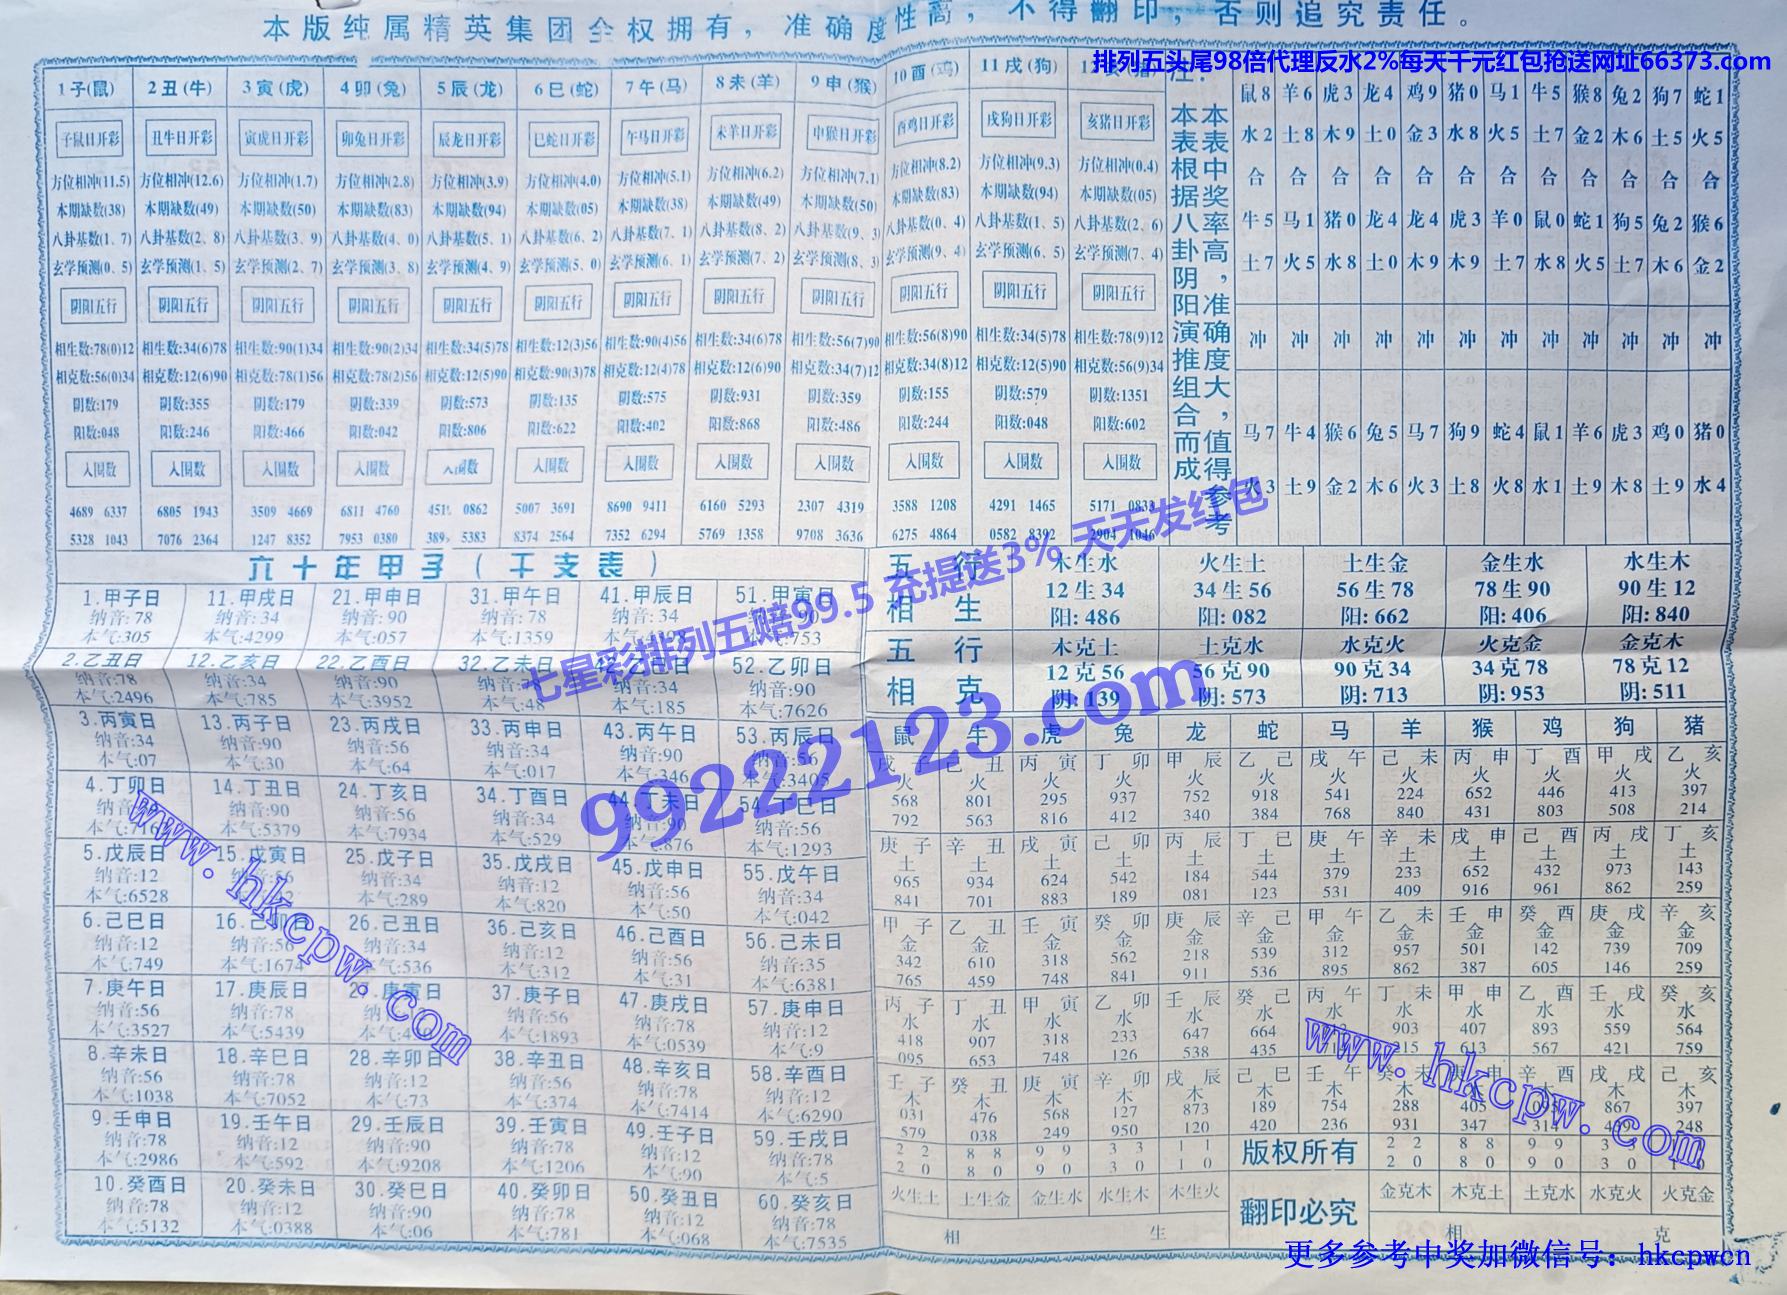 本版纯属精英集团全权拥有，准确度性高，不得翻印，否则追究责任。
排列五头尾98倍代理反水2%每天千元红包抢送网址66373.com
1子(鼠) 2丑(牛) 3寅(虎) 4卯(兔) 5辰(龙) 6巳(蛇) 7午(马) 8未(羊) 9申(猴) 10酉(鸡) 11戌(狗)
子鼠日开彩 丑牛日开彩 寅虎日开彩 卯兔日开彩 辰龙日开彩 巳蛇日开彩 午马日开彩 未羊日开彩 申猴日开彩 酉鸡日开彩 戌狗日开彩 亥猪日开彩
方位相冲(11.5) 方位相冲(12.6) 方位相冲(1.7) 方位相冲(2.8) 方位相冲(3.9) 方位相冲(4.0) 方位相冲(5.1) 方位相冲(6.2) 方位相冲(7.1) 方位相冲(8.2) 方位相冲(9.3) 方位相冲(0.4)
本期缺数(38) 本期缺数(49) 本期缺数(50) 本期缺数(83) 本期缺数(94) 本期缺数(05) 本期缺数(38) 本期缺数(49) 本期缺数(50) 本期缺数(83) 本期缺数(94) 本期缺数(05)
八卦基数(1、7) 八卦基数(2、8) 八卦基数(3、9) 八卦基数(4、0) 八卦基数(5、1) 八卦基数(6、2) 八卦基数(7、1) 八卦基数(8、2) 八卦基数(9、3) 八卦基数(0、4) 八卦基数(1、5) 八卦基数(2、6)
玄学预测(0、5) 玄学预测(1、5) 玄学预测(2、7) 玄学预测(3、8) 玄学预测(4、9) 玄学预测(5、0) 玄学预测(6、1) 玄学预测(7、2) 玄学预测(8、3) 玄学预测(9、4) 玄学预测(6、5) 玄学预测(7、4)
阴阳五行 阴阳五行 阴阳五行 阴阳五行 阴阳五行 阴阳五行 阴阳五行 阴阳五行 阴阳五行 阴阳五行 阴阳五行 阴阳五行
相生数:78(0)12 相生数:34(6)78 相生数:90(1)34 相生数:90(2)34 相生数:34(5)78 相生数:12(3)56 相生数:90(4)56 相生数:34(6)78 相生数:56(7)90 相生数:56(8)90 相生数:34(5)78 相生数:78(9)12
相克数:56(0)34 相克数:12(6)90 相克数:78(1)56 相克数:78(2)56 相克数:12(5)90 相克数:90(3)78 相克数:12(4)78 相克数:12(6)90 相克数:34(7)12 相克数:34(8)12 相克数:12(5)90 相克数:56(9)34
阴数:179 阴数:355 阴数:179 阴数:339 阴数:573 阴数:135 阴数:575 阴数:931 阴数:359 阴数:155 阴数:579 阴数:1351
阳数:048 阳数:246 阳数:466 阳数:042 阳数:806 阳数:622 阳数:402 阳数:868 阳数:486 阳数:244 阳数:048 阳数:602
入围数 入围数 入围数 入围数 入围数 入围数 入围数 入围数 入围数 入围数 入围数 入围数
4689 6337 6805 1943 3509 4669 6811 4760 0862 5007 3691 8690 9411 6160 5293 2307 4319 3588 1208 4291 1465 5171
5328 1043 7076 2364 1247 8352 7953 0380 5383 8374 2564 7352 6294 5769 1358 9708 3636 6275 4864 0582 8392 2904 1046
注:
本表中奖率高，准确度大，值得参考
本表根据八卦阴阳演推组合而成
鼠8 羊6 虎3 龙4 鸡9 猪0 马1 牛5 猴8 兔2 狗7 蛇1
水2 土8 木9 土0 金3 水8 火5 土7 金2 木6 土5 火5
合 合 合 合 合 合 合 合 合 合 合 合
牛5 马1 猪0 龙4 龙4 虎3 羊0 鼠0 蛇1 狗5 兔2 猴6
土7 火5 水8 土0 木9 木9 土7 水8 火5 土7 木6 金2
冲 冲 冲 冲 冲 冲 冲 冲 冲 冲 冲 冲
马7 牛4 猴6 兔5 马7 狗9 蛇4 鼠1 羊6 虎3 鸡0 猪0
火3 土9 金2 木6 火3 土8 火8 水1 土9 木8 土9 水4
六十年甲子(干支表)
1.甲子日 11.甲戌日 21.甲申日 31.甲午日 41.甲辰日 51.甲寅日
纳音:78 纳音:34 纳音:90 纳音:78 纳音:34
本气:305 本气:4299 本气:057 本气:1359
2.乙丑日 12.乙亥日 22.乙酉日 32.乙未日 52.乙卯日
纳音:78 纳音:34 纳音:90 纳音:34 纳音:90
本气:2496 本气:785 本气:3952 本气:48 本气:185 本气:7626
3.丙寅日 13.丙子日 23.丙戌日 33.丙申日 43.丙午日 53.丙辰日
纳音:34 纳音:90 纳音:56 纳音:34 纳音:90 纳音:56
本气:07 本气:30 本气:64 本气:017 本气:346 本气:3405
4.丁卯日 14.丁丑日 24.丁亥日 34.丁酉日 44.丁未日
纳音:90 纳音:56 纳音:34 纳音:90 纳音:56
本气:5379 本气:7934 本气:529 本气:876 本气:1293
5.戊辰日 15.戊寅日 25.戊子日 35.戊戌日 45.戊申日 55.戊午日
纳音:12 纳音:34 纳音:12 纳音:56 纳音:34
本气:6528 本气:289 本气:820 本气:50 本气:042
6.己巳日 26.己丑日 36.己亥日 46.己酉日 56.己未日
纳音:12 纳音:56 纳音:34 纳音:12 纳音:56 纳音:35
本气:749 本气:1674 本气:536 本气:312 本气:31 本气:6381
7.庚午日 17.庚辰日 37.庚子日 47.庚戌日 57.庚申日
纳音:56 纳音:78 纳音:56 纳音:78 纳音:12
本气:3527 本气:5439 本气:1893 本气:0539 本气:9
8.辛未日 18.辛巳日 28.辛卯日 38.辛丑日 48.辛亥日 58.辛酉日
纳音:56 纳音:78 纳音:12 纳音:56 纳音:78 纳音:12
本气:1038 本气:7052 本气:73 本气:374 本气:7414 本气:6290
9.壬申日 19.壬午日 29.壬辰日 39.壬寅日 49.壬子日 59.壬戌日
纳音:78 纳音:12 纳音:90 纳音:78 纳音:12 纳音:78
本气:2986 本气:592 本气:9208 本气:1206 本气:90 本气:5
10.癸酉日 20.癸未日 30.癸巳日 40.癸卯日 50.癸丑日 60.癸亥日
纳音:78 纳音:12 纳音:90 纳音:78 纳音:12 纳音:78
本气:5132 本气:0388 本气:06 本气:781 本气:068 本气:7535
五行相生
木生水 火生土 土生金 金生水 水生木
12生34 34生56 56生78 78生90 90生12
阳:486 阳:082 阳:662 阳:406 阳:840
五行相克
木克土 土克水 水克火 火克金 金克木
12克56 56克90 90克34 34克78 78克12
阴:139 阴:573 阴:713 阴:953 阴:511
鼠 牛 虎 兔 龙 蛇 马 羊 猴 鸡 狗 猪
戊子 己丑 丙寅 丁卯 甲辰 乙己 戊午 己未 丙申 丁酉 甲戌 乙亥
火 火 火 火 火 火 火 火 火 火 火 火
568 801 295 937 752 918 541 224 652 446 413 397
792 563 816 412 340 384 768 840 431 803 508 214
庚子 辛丑 戊寅 己卯 丙辰 丁己 庚午 辛未 戊申 己酉 丙戌 丁亥
土 土 土 土 土 土 土 土 土 土 土 土
965 934 624 542 184 544 379 233 652 432 973 143
841 701 883 189 081 123 531 409 916 961 862 259
甲子 乙丑 壬寅 癸卯 庚辰 辛己 甲午 乙未 壬申 癸酉 庚戌 辛亥
金 金 金 金 金 金 金 金 金 金 金 金
342 610 318 562 218 539 312 957 501 142 739 709
765 459 748 841 911 536 895 862 387 605 146 259
丙子 丁丑 甲寅 乙卯 壬辰 癸己 丙午 丁未 甲申 乙酉 壬戌 癸亥
水 水 水 水 水 水 水 水 水 水 水
418 907 318 233 647 664 903 407 893 559 564
095 653 748 126 538 435 613 567 421 759
壬子 癸丑 庚寅 辛卯 戊辰 己巳 壬午 癸未 庚申 辛酉 戊戌 己亥
木 木 木 木 木 木 木 木 木 木 木
031 476 568 127 873 189 754 288 405 867 397
579 038 249 950 120 420 236 931 347 314 248
2 2 8 8 9 9 3 3 1 1 版权所有 2 2 8 8 9 9
2 0 8 0 9 0 3 0 1 0 2 0 8 0 9 0 3 0 1 0
火生土 土生金 金生水 水生木 木生火 翻印必究 金克木 木克土 土克水 水克火 火克金
相生 相克
七星彩排列五赔99.5 充提送3% 天天发红包
99222123.com
www.hkcpw.com
www.hkcpw.com
更多参考中奖加微信号：hkcpwcn